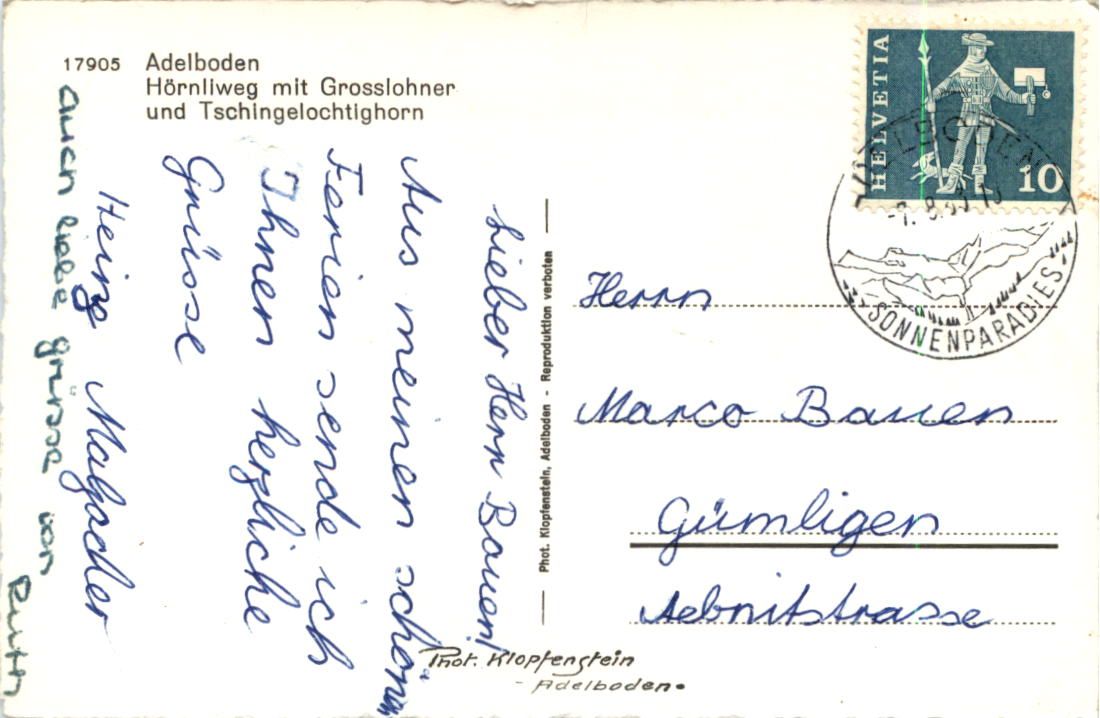 17905 Adelboden
Hörnliweg mit Grosslohner
und Tschingelochtighorn
Lieber Herr Bauen!
Aus meinen schönen
Ferien sende ich
Ihnen herzliche
Grüsse
Heinz
Auch liebe grüsse von Ruth
Phot. Klopfenstein, Adelboden - Reproduktion verboten
Phot. Klopfenstein
- Adelboden.
HELVETIA
10
ADELBODEN
SONNENPARADIES
Herrn
Marco Bauen
Gümligen
Aebnitstrasse